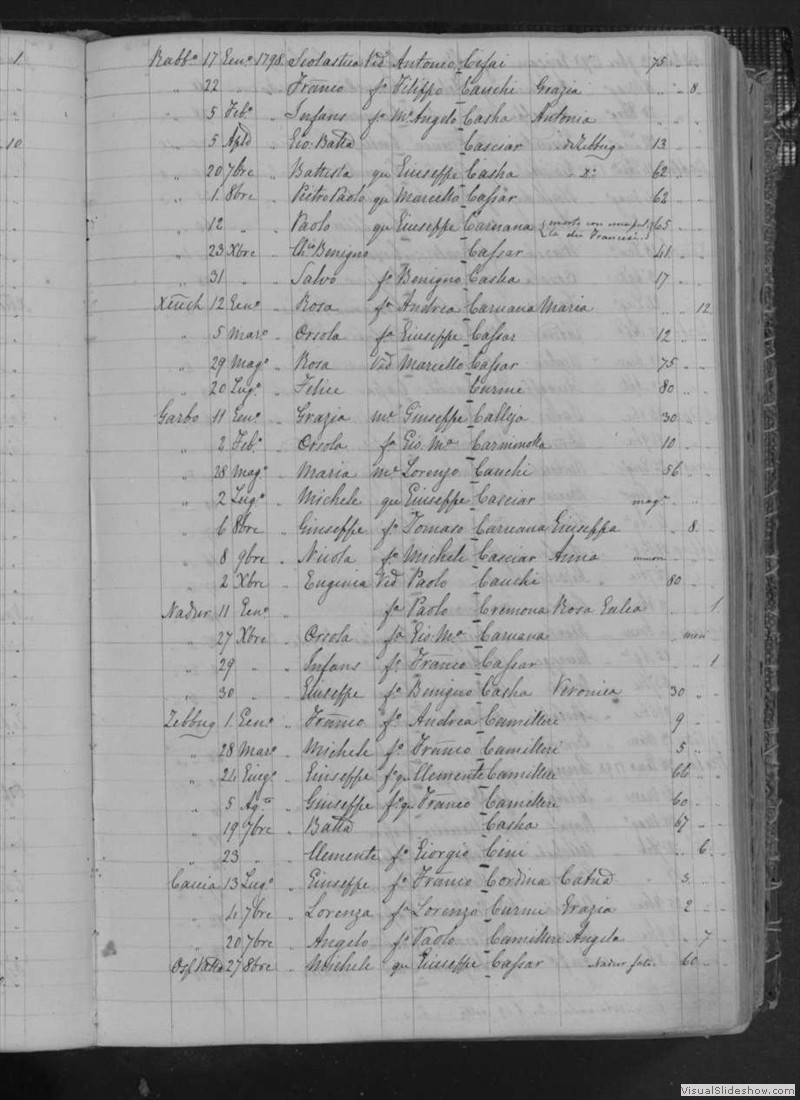 1
10
Rabb.o 17 Gen.o 1798 Scolastica Vid. Antonio Cefai 75
" 22 " " Franco f.o Filippo Cauchi Grazia " " 8
" 5 Feb.o " Infans f.o M.o Angelo Casha Antonia
" 5 " Gio: Batta Casciar di Zebbug 13
" 20 7bre " Battista qu Giuseppe Casha 62
" 1. 8bre " Pietro Paolo qu Marcello Cassar 62
" 12 " " Paolo qu Giuseppe Caruana (morto con una pal- 65
la dei Francesi)
" 23 Xbre " Ch.o Benigno Cassar 41
" 31 " Salvo f.o Benigno Casha 17
Xeuch 12 Gen.o " Rosa f.a Andrea Caruana Maria " " 12
" 5 Mar.o " Orsola f.a Giuseppe Cassar 12
" 29 Mag.o " Rosa Vid Marcello Cassar 75
" 20 Lug.o " Felice Curmi 80
Garbo 11 Gen.o " Grazia m.e Giuseppe Calleja 30
" 2 Feb.o " Orsola f.a Gio. M.a 10
" 28 Mag.o " Maria m.e Lorenzo Cauchi 56
" 2 Lug.o " Michele qu Giuseppe Casciar mag.e
" 6 8bre " Giuseppe f.o Tomaso Caruana Giuseppa " 8
" 8 9bre " Nicola f.o Michele Casciar Anna minore
" 2 Xbre " Eugenia Vid Paolo Cauchi 80
Nadur 11 Gen.o " f.a Paolo Cremona Rosa Eulia " " 1
" 27 Xbre " Orsola f.a Gio M.a Caruana mesi
" 29 " " Infans f.o Franco Cassar " 1
" 30 " Giuseppe f.o Benigno Casha Veronica 30
Zebbug 1. Gen.o " Franco f.o Andrea Camilleri 9
" 28 Mar.o " Michele f.o Franco Camilleri 5
" 24 Giug.o " Giuseppe f.o qu Clemente Camilleri 66
" 5 Ag.to " Giuseppe f.o qu Franco Camilleri 60
" 19 7bre " Batta Casha 67
" 23 " " Clemente f.o Giorgio Cini " 6
Caccia 13 Lug.o " Giuseppe f.o Franco Cordina Catna 3
" 4 7bre " Lorenza f.a Lorenzo Curmi Grazia 2
" 20 7bre " Angelo f.o Paolo Camilleri Angela " 7
27 8bre " Michele qu Giuseppe Cassar Nadur 60
VisualSlideshow.com